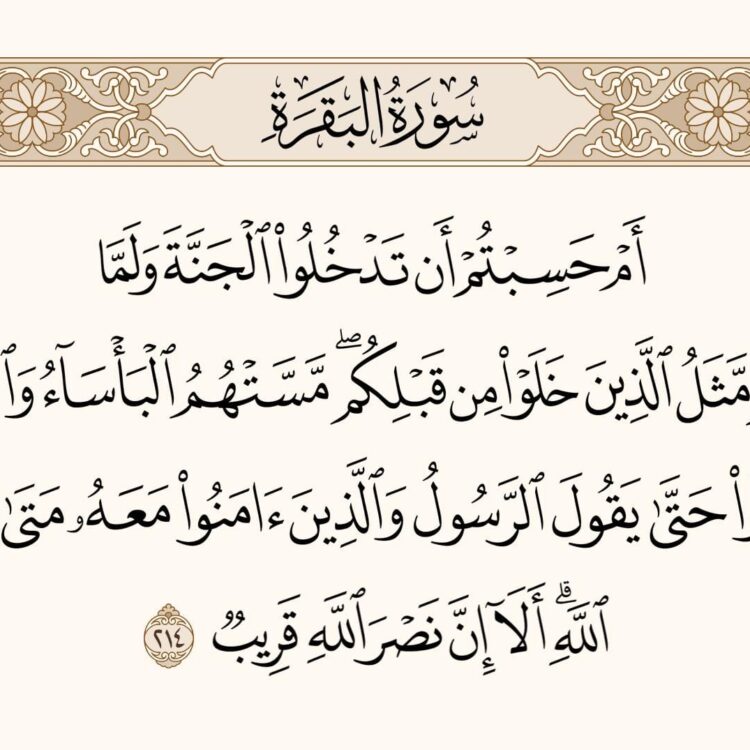 سُورَةُ الْبَقَرَةِ
أَمۡ حَسِبۡتُمۡ أَن تَدۡخُلُواْ ٱلۡجَنَّةَ وَلَمَّا
مَّثَلُ ٱلَّذِينَ خَلَوۡاْ مِن قَبۡلِكُمۖ مَّسَّتۡهُمُ ٱلۡبَأۡسَآءُ
حَتَّىٰ يَقُولَ ٱلرَّسُولُ وَٱلَّذِينَ ءَامَنُواْ مَعَهُۥ مَتَىٰ
ٱللَّهِۗ أَلَآ إِنَّ نَصۡرَ ٱللَّهِ قَرِيبٞ ٢١٤